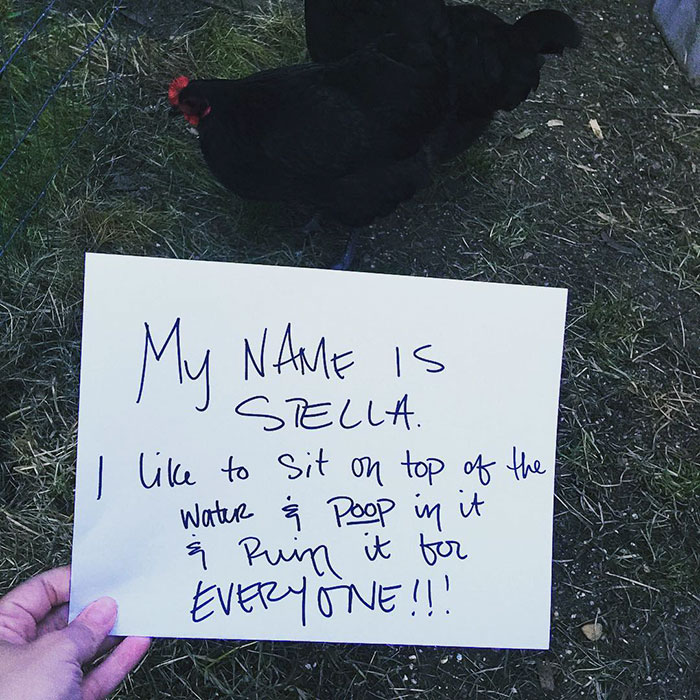 My NAME IS
STELLA.
I like to sit on top of the
water & Poop in it
& Ruin it for
EVERYONE!!!